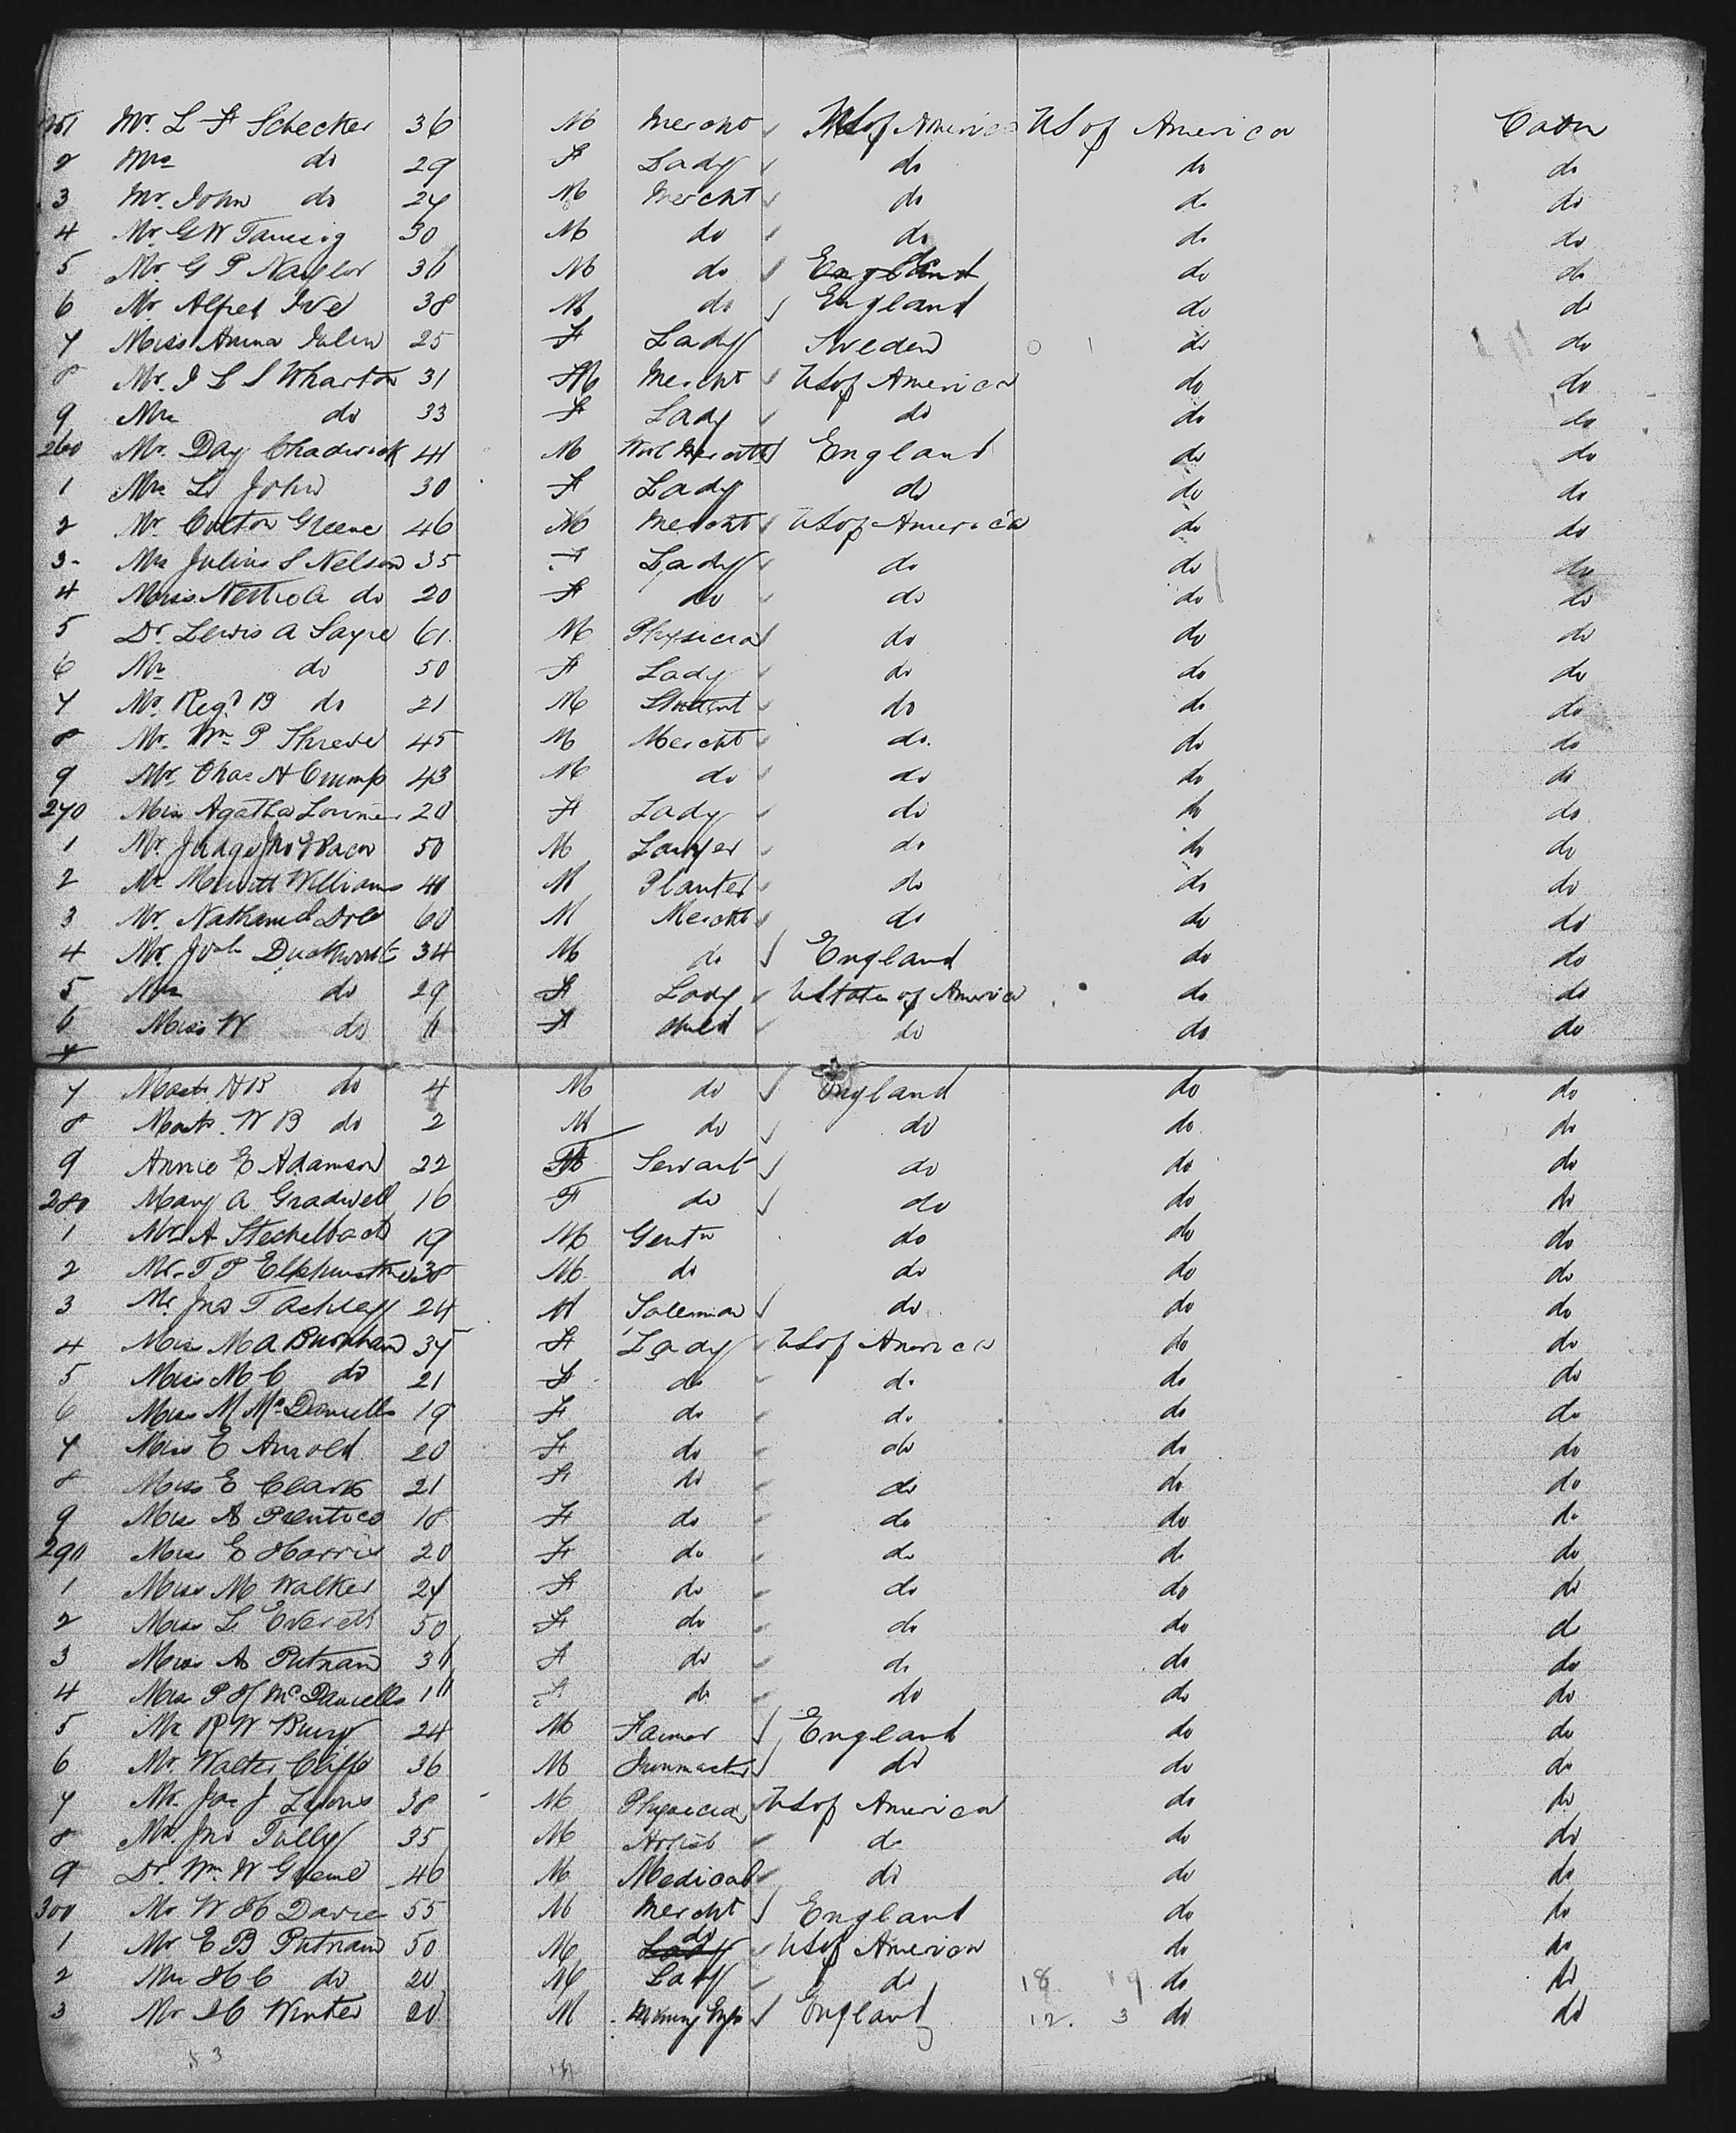 251 Mr. L F Schecker 36 M Mercht US of America US of America Cabin
2 Mrs do 29 F Lady do do do
3 Mr. John do 24 M Mercht do do do
4 Mr. G W Taussig 30 M do do do do
5 Mr G P Naylor 36 M do England do do do
6 Mr Alfred Ive 38 M do England do do
7 Miss Anna 25 F Lady Sweden do do
8 Mr. J L S Wharton 31 M Mercht US of America do do
9 Mrs do 33 F Lady do do do
260 Mr. Day Chadwick 41 M England do do
1 Mrs St John 30 F Lady do do do
2 Mr Colton Greene 46 M Mercht US of America do do
3 Mrs Julius S Nelson 35 F Lady do do do
4 Miss Nettie A do 20 F do do do do
5 Dr. Lewis A Sayre 61 M Physician do do do
6 Mrs do 50 F Lady do do do
7 Mr. Regd B do 21 M Student do do do
8 Mr. Wm P Shreve 45 M Mercht do do do
9 Mr. Chas H Crump 43 M do do do do
270 Miss Agatha 20 F Lady do do do
1 Mr Judge Jno E Bacon 50 M Lawyer do do do
2 Mr Merritt Williams 41 M Planter do do do
3 Mr. Nathaniel Dole 60 M Mercht do do do
4 Mr. Duckworth 34 M do England do do
5 Mrs do 29 F Lady U States of America do do
6 Miss W do 6 F child do do do
7
7 Mastr. H B do 4 M do England do do
8 Mastr. W B do 2 M do do do do
9 Annie E Adamson 22 F Servant do do do
280 Mary A Gradwell 16 F do do do do
1 Mr A Stechelbach 19 M Gentn do do do
2 Mr. T P 38 M do do do do
3 Mr Jno T 24 M Salesman do do do
4 Miss M A Burnham 35 F Lady US of America do do
5 Miss M C do 21 F do do do do
6 Miss M McDaniells 19 F do do do do
7 Miss E Arnold 20 F do do do do
8 Miss E Clark 21 F do do do do
9 Miss A Prentice 18 F do do do do
290 Miss E Harris 20 F do do do do
1 Miss M Walker 24 F do do do do
2 Miss L Everett 50 F do do do do
3 Miss A Putnam 36 F do do do do
4 Miss P H McDaniells 16 F do do do do
5 Mr R W 24 M Farmer England do do
6 Mr. Walter Cliff 36 M Ironmaster do do do
7 Mr. Jas J Lyons 38 M Physician US of America do do
8 Mr. Jno Tully 35 M Artist do do do
9 Dr. Wm W Greene 46 M Medical do do do
300 Mr W H Davies 55 M Mercht England do do
1 Mr E B Putnam 50 M Lady do US of America do do
2 Mrs H C do 20 M Lady do 18 do do
3 Mr H Winter 20 M Mining Engr England 12. 3 do do